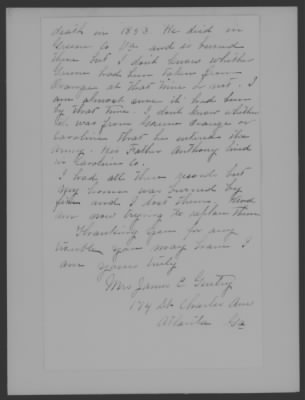 death in 1853. He died in
Greene Co Va. and is buried
there but I dont know whether
Greene had been taken from
Orange at that time or not. I
am almost sure it had been
by that time. I dont know whether
he was from Greene Orange or
Caroline that he entered the
army. His Father Anthony lived
in Caroline Co.
I had all these records but
my home was burned by
fire and I lost them. And
am now trying to replace them
Thanking you for any
trouble you may have I
am yours truly
Mrs James C Gentry
174 St Charles Ave
Atlanta Ga